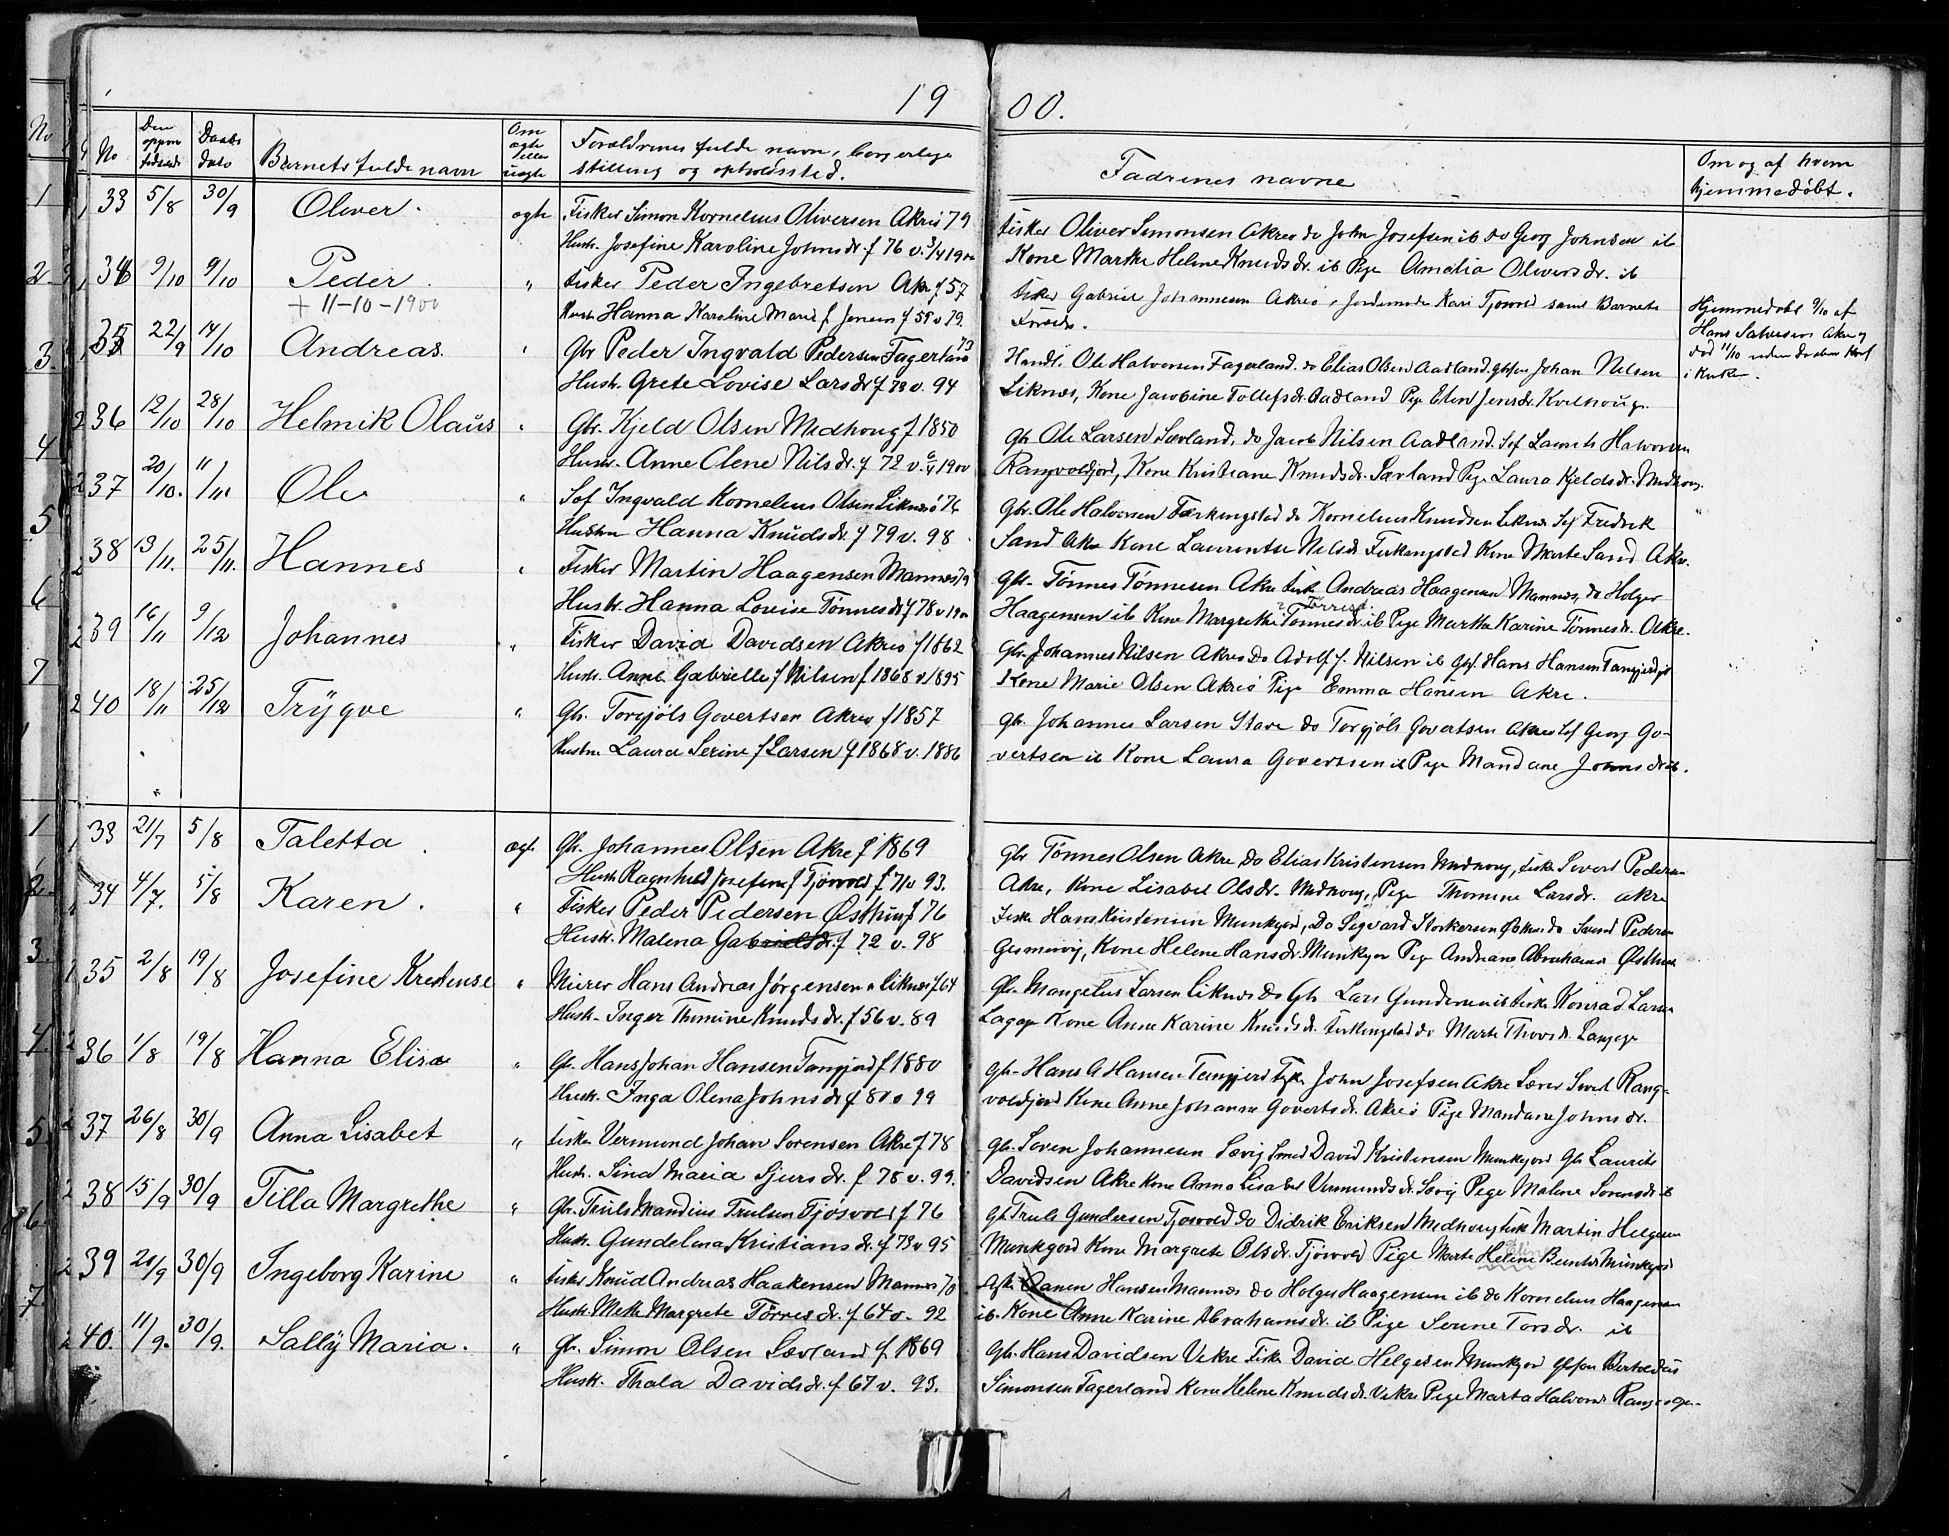 19 00.
No
Den oppgivne fødselsdt
Daabs dato
Barnets fulde navn
Om ægte eller uægte
Forældrenes fulde navn, borgerlige stilling og opholdssted.
Fadrenes navne
Om og af hvem hjemmedøbt.
33 5/8 30/9 Oliver. ægte Fisker Simon Kornelius Oliversen Akre f 79
Hustr. Josefine Karoline Johnsdr. f 76 v. 3/4 1900
fisker Oliver Simonsen Akre do John Josefsen ib do Georg Johnsen ib
Kone Marthe Helene Knudsdr. ib Pige Amalia Oliversdr. ib
34 9/10 9/10 Peder. " fisker Peder Ingebretsen Akre f 57
+ 11-10-1900
Hustr. Hanna Karoline Marie f Jensen f 59 v 79.
fisker Gabriel Johannesen Akre, Jordemoder Kari Tjosvold samt Barnets
Forældr.
Hjemmedøbt 9/10 af
Hans Salvesen Akre og
død 11/10 uden daaben
i Kirke.
35 22/9 14/10 Andreas. " Gbr Peder Ingvald Pedersen Fagerland 73
Hustr. Grete Lovise Larsdr f 78 v. 94
Handl. Ole Halvorsen Fagerland. do Elias Olsen Aadland. Johan Nilsen
Liknes, Kone Jacobine Tollefsdr. Aadland Pige Elen Jensdr. Kvilhoug.
36 12/10 28/10 Helmik Olaus " Gbr. Kjeld Olsen Medhoug f 1850
Hustr. Anne Olene Nilsdr. f 72 v. 1900
gbr Ole Larsen Sævland, do Jacob Nilsen Aadland. Sof Laurits Halvorsen
Rangvoldjord, Kone Kristiane Knudsdr. Sævland Pige Laura Kjeldsdr. Medhoug.
37 20/10. 11/11 Ole " Sof Ingvald Kornelius Olsen Liknes f 76
Hustru Hanna Knudsdr. f 79 v. 98.
Gbr. Ole Halvorsen Ferkingstad do Kornelius Knudsen Liknes Sof Fredrik
Sand Akre Kone Laurentse Nilsdr Ferkingstad Kone Marte Sand Akre.
38 13/11. 25/11. Hannes " Fisker Martin Haagensen Mannes 79
Hustr. Hanna Lovise Tønnesdr f 78 v 1900
gbr. Tønnes Tønnesen Akre fisk Andreas Haagensen Mannes, do Holger
Haagensen ib Kone Margrethe Tønnesdr. ib Pige Martha Karine Tønnesdr. Akre.
39 16/11 9/12 Johannes " Fisker David Davidsen Akre f 1862
Hustr. Anne Gabrielle f Nilsen f 1868 v 1895
gbr. Johannes Nilsen Akre do Adolf f. Nilsen ib gbf. Hans Hansen Tangjerd
Kone Marie Olsen Akre Pige Emma Hansen Akre.
40 18/11 25/12 Trygve " Gbr. Torgjøls Govertsen Akre f 1857
Hustru Laura Serine f Larsen f 1868 v. 1886
gbr. Johannes Larsen Stave do Torgjøls Govertsen Akre Sof Georg Go-
vertsen ib Kone Laura Govertsen ib Pige Mandane Johnsdr ib.
33 21/7 5/8 Taletta. ægt. Gbr. Johannes Olsen Akre f 1869
Hustr Ragnhild Josefine f Tjøsvold f 71 v 93.
gbr Tønnes Olsen Akre do Elias Kristensen Medhoug, fisk Sivert Pedersen
Akre, Kone Lisabet Olsdr. Medhoug, Pige Thomine Larsdr. Akre
34 4/7. 5/8 Karen. " Fisker Peder Pedersen Østhus f 76
Hustr. Malena Gabrielsdr. f 72 v. 98
Fisk Hans Kristensen Munkejord, Do Sigvard Storkersen Østhus do Svend Pedersen
Gismervig, Kone Helene Hansdr. Munkejor Pige Andriane Abrahams Østhus
35 2/8 19/8 Josefine Kristense " Murer Hans Andreas Jørgensen Liknes f 64
Hustr. Inger Thomine Knudsdr. f 56 v. 89
Gbr. Mangelus Larsen Liknes do Gbr Lars Gundersen ib fisk Konrad Larsen
Langage Kone Anne Karine Knudsdr. Ferkingstad do Marte Thorsdr. Langage
36 1/8 19/8 Hanna Elise " Gbr. Hans Johan Hansen Tangjerd f 1880
Hustr. Inga Olena Johnsdr f 80 v 99
gbr. Hans A Hansen Tangjerd Fisk John Josefsen Akre Lærer Sivert Rang-
voldjord Kone Anne Johanne Govertsdr. Akre Pige Mandane Johnsdr.
37 26/8 30/9 Anna Lisabet " fisker Vermund Johan Sørensen Akre f 78
Hustr. Sina Maria Sjursdr. f 78 v. 99.
gbr. Søren Johannesen Sævig Smed David Kristensen Munkejord Gbr Laurits
Davidsen Akre Kone Anna Lisabet Vermundsdr. Sævig Pige Malene Sørensdr ib
38 15/9 30/9 Tilla Margrethe " Gbr. Truls Mandius Trulsen Tjøsvold f 76
Hustr. Gundelena Kristiansdr. f 73 v 95
gbr. Truls Gundersen Tjøsvold do Didrik Eriksen Medhoug fisk Martin Helgesen
Munkejord Kone Margrete Olsdr. Tjøsvold Pige Marte Helene Bentsdr Munkejord
39 20/9 30/9 Ingeborg Karine " fisker Knud Andreas Haakensen Mannes 70
Hustr. Mette Margrete Tørresdr. f 64 v. 92
Aanen Hansen Mannes do Holger Haagensen ib do Kornelius Haagensen
ib. Kone Anne Karine Abrahamsdr. ib Pige Serine Torsdr. ib
40. 11/9. 30/9. Sally Maria. " gbr. Simon Olsen Sævland f. 1869
Hustr. Thala Davidsdr. f 67 v. 93.
Gbr. Hans Davidsen Vikre Fisk David Helgesen Munkejor Bertoldus
Simonsen Fagerland Kone Helene Knudsdr. Vikre Pige Marta Halvors